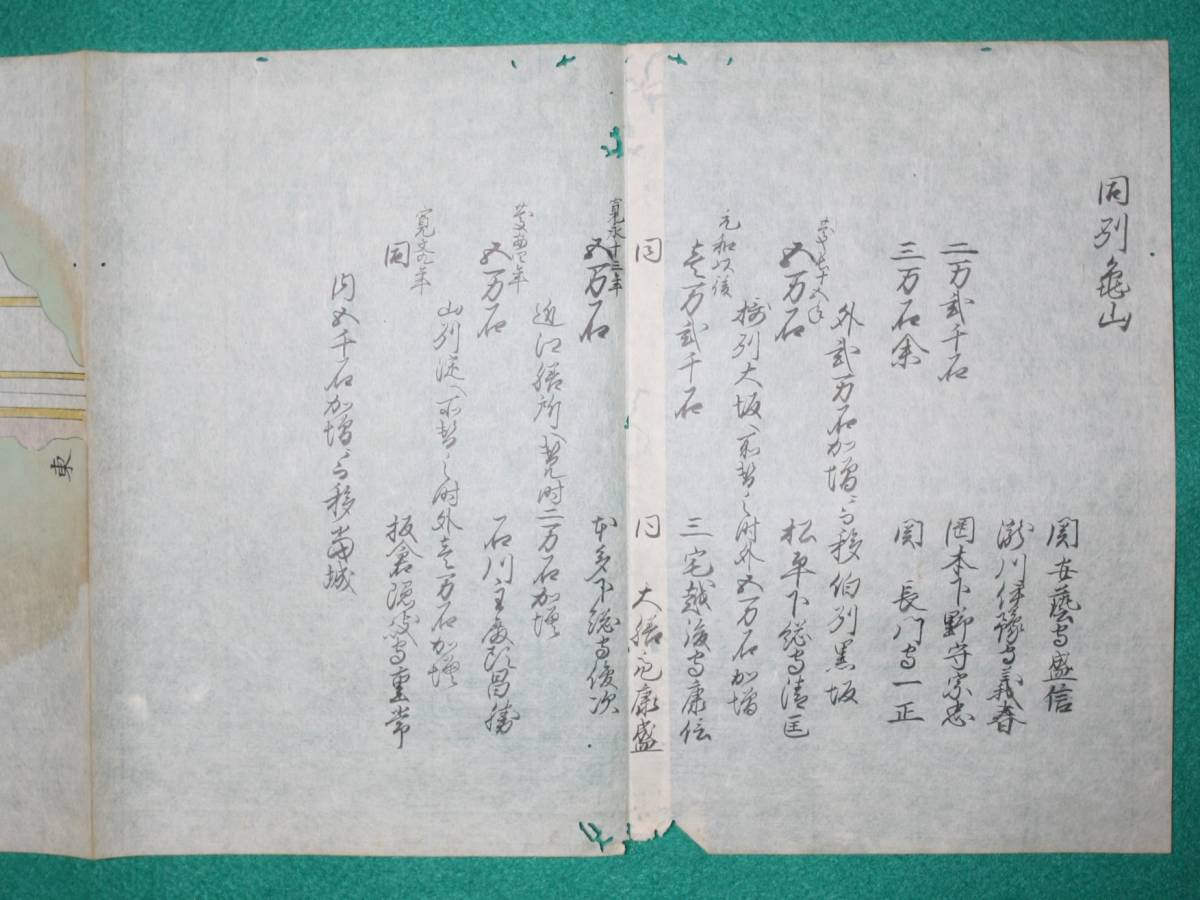 同列亀山
関安藝守盛信
瀧川伊豫守義春
二万貳千石 岡本下野守宗忠
三万石余 関 長門守一正
外貳万石加増ニ而移伯列黒坂
五万石 松平下総守清匡
摂列大坂へ所替之時外五万石加増
元和以後
壱万貳千石 三宅越後守康信
同 同 大膳亮康盛
寛永十三年
五万石 本多下総守俊次
近江膳所へ替時二万石加増
慶安四年
五万石 石川主殿頭昌勝
山列淀へ所替之時外壱万石加増
寛文九年
同 板倉隠岐守重常
内五千石加増ニ而移當城
東